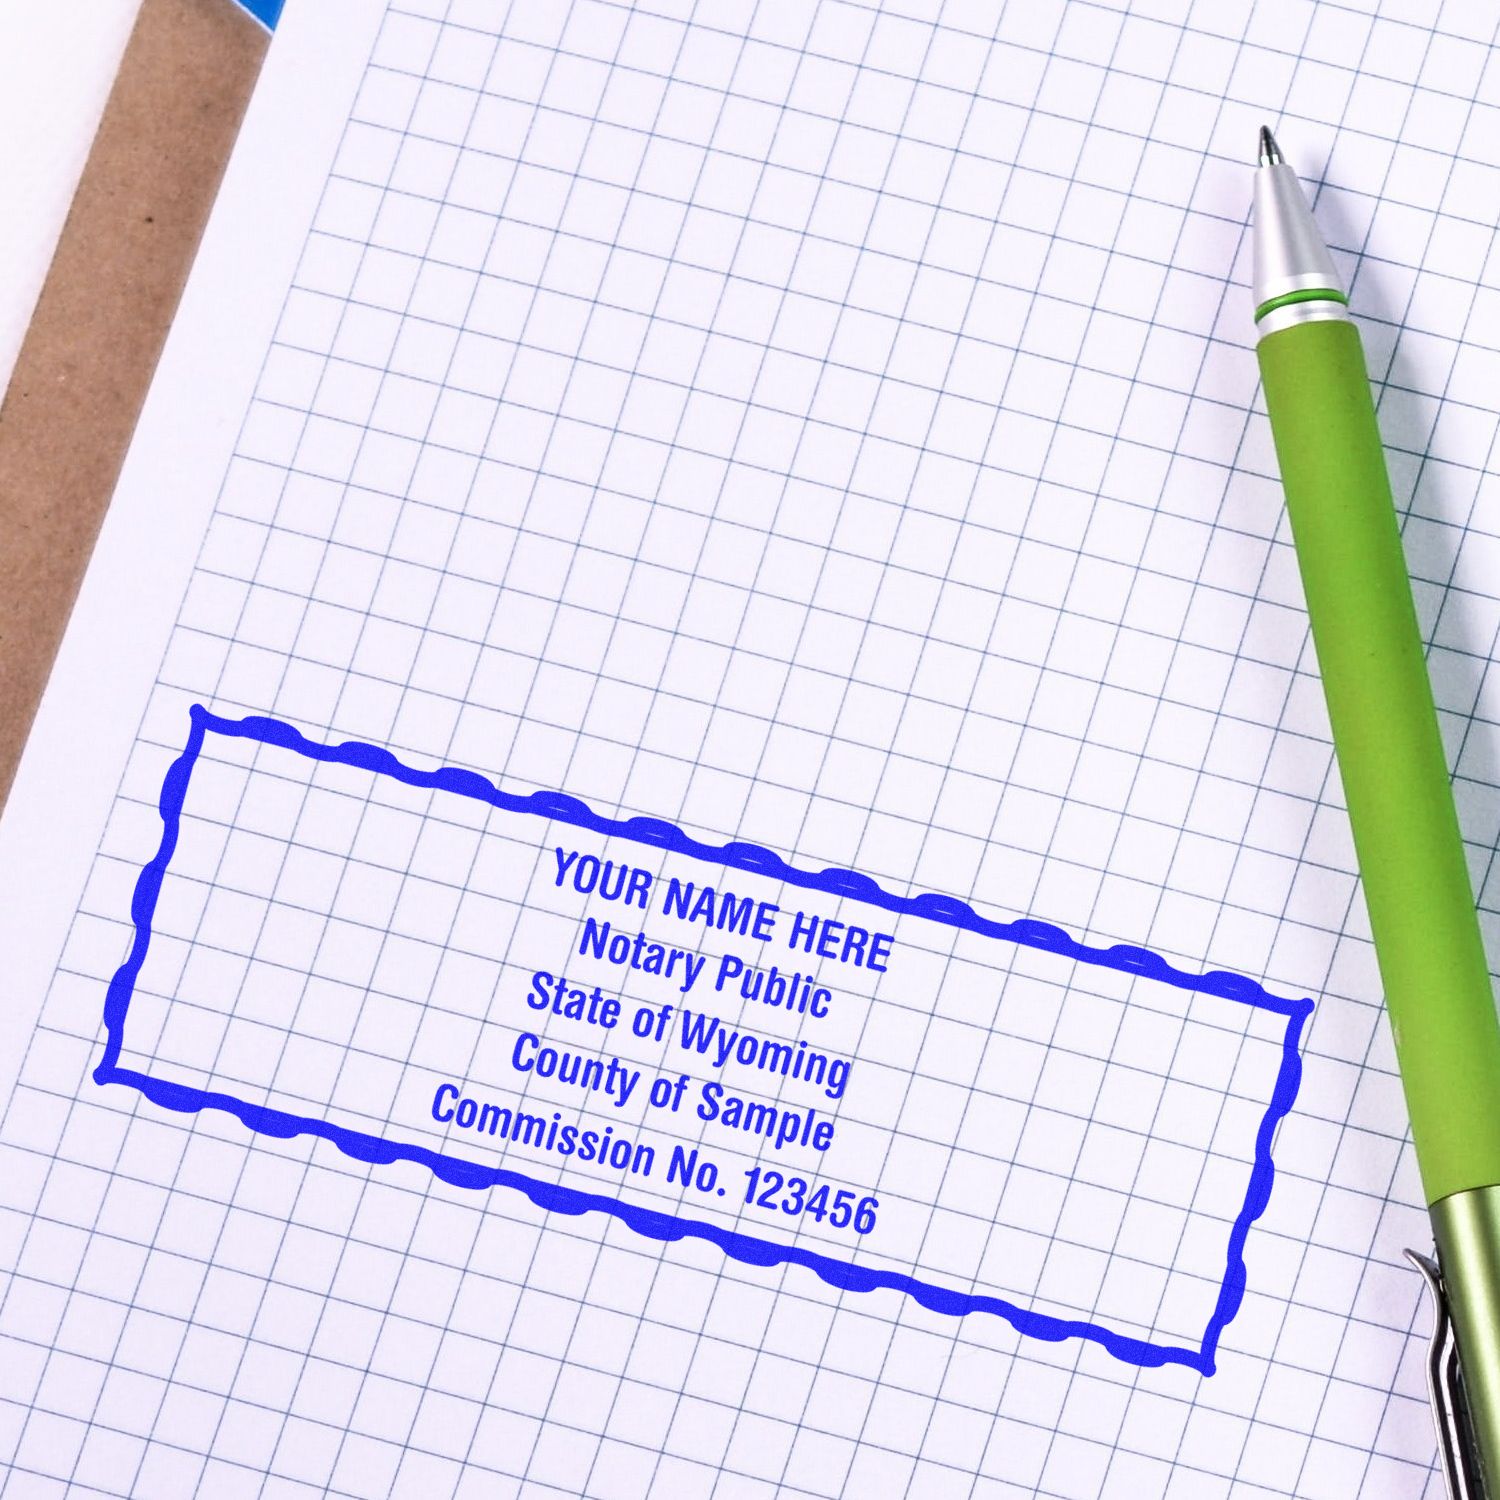 YOUR NAME HERE
Notary Public
State of Wyoming
County of Sample
Commission No. 123456